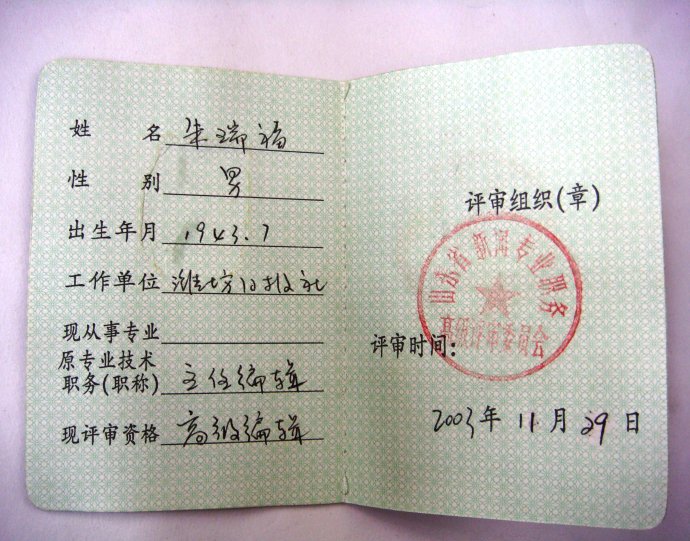 姓 名 朱瑞福
性 别 男
出生年月 1943.7
工作单位 潍坊日报社
现从事专业
原专业技术
职务(职称) 主任编辑
现评审资格 高级编辑
评审组织(章)
山东省新闻专业职务
高级评审委员会
评审时间:
2003年11月29日